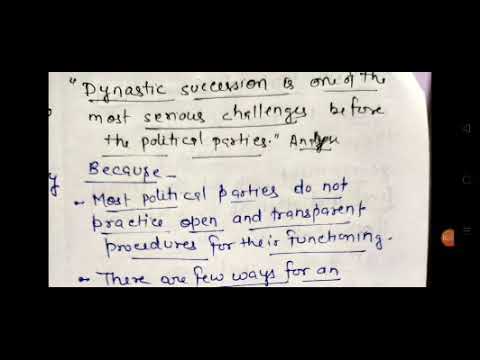 "Dynastic succession is one of the
most serious challenges before
the political parties." Analyse
Because -
- Most political parties do not
practice open and transparent
procedures for their functioning.
- There are few ways for an